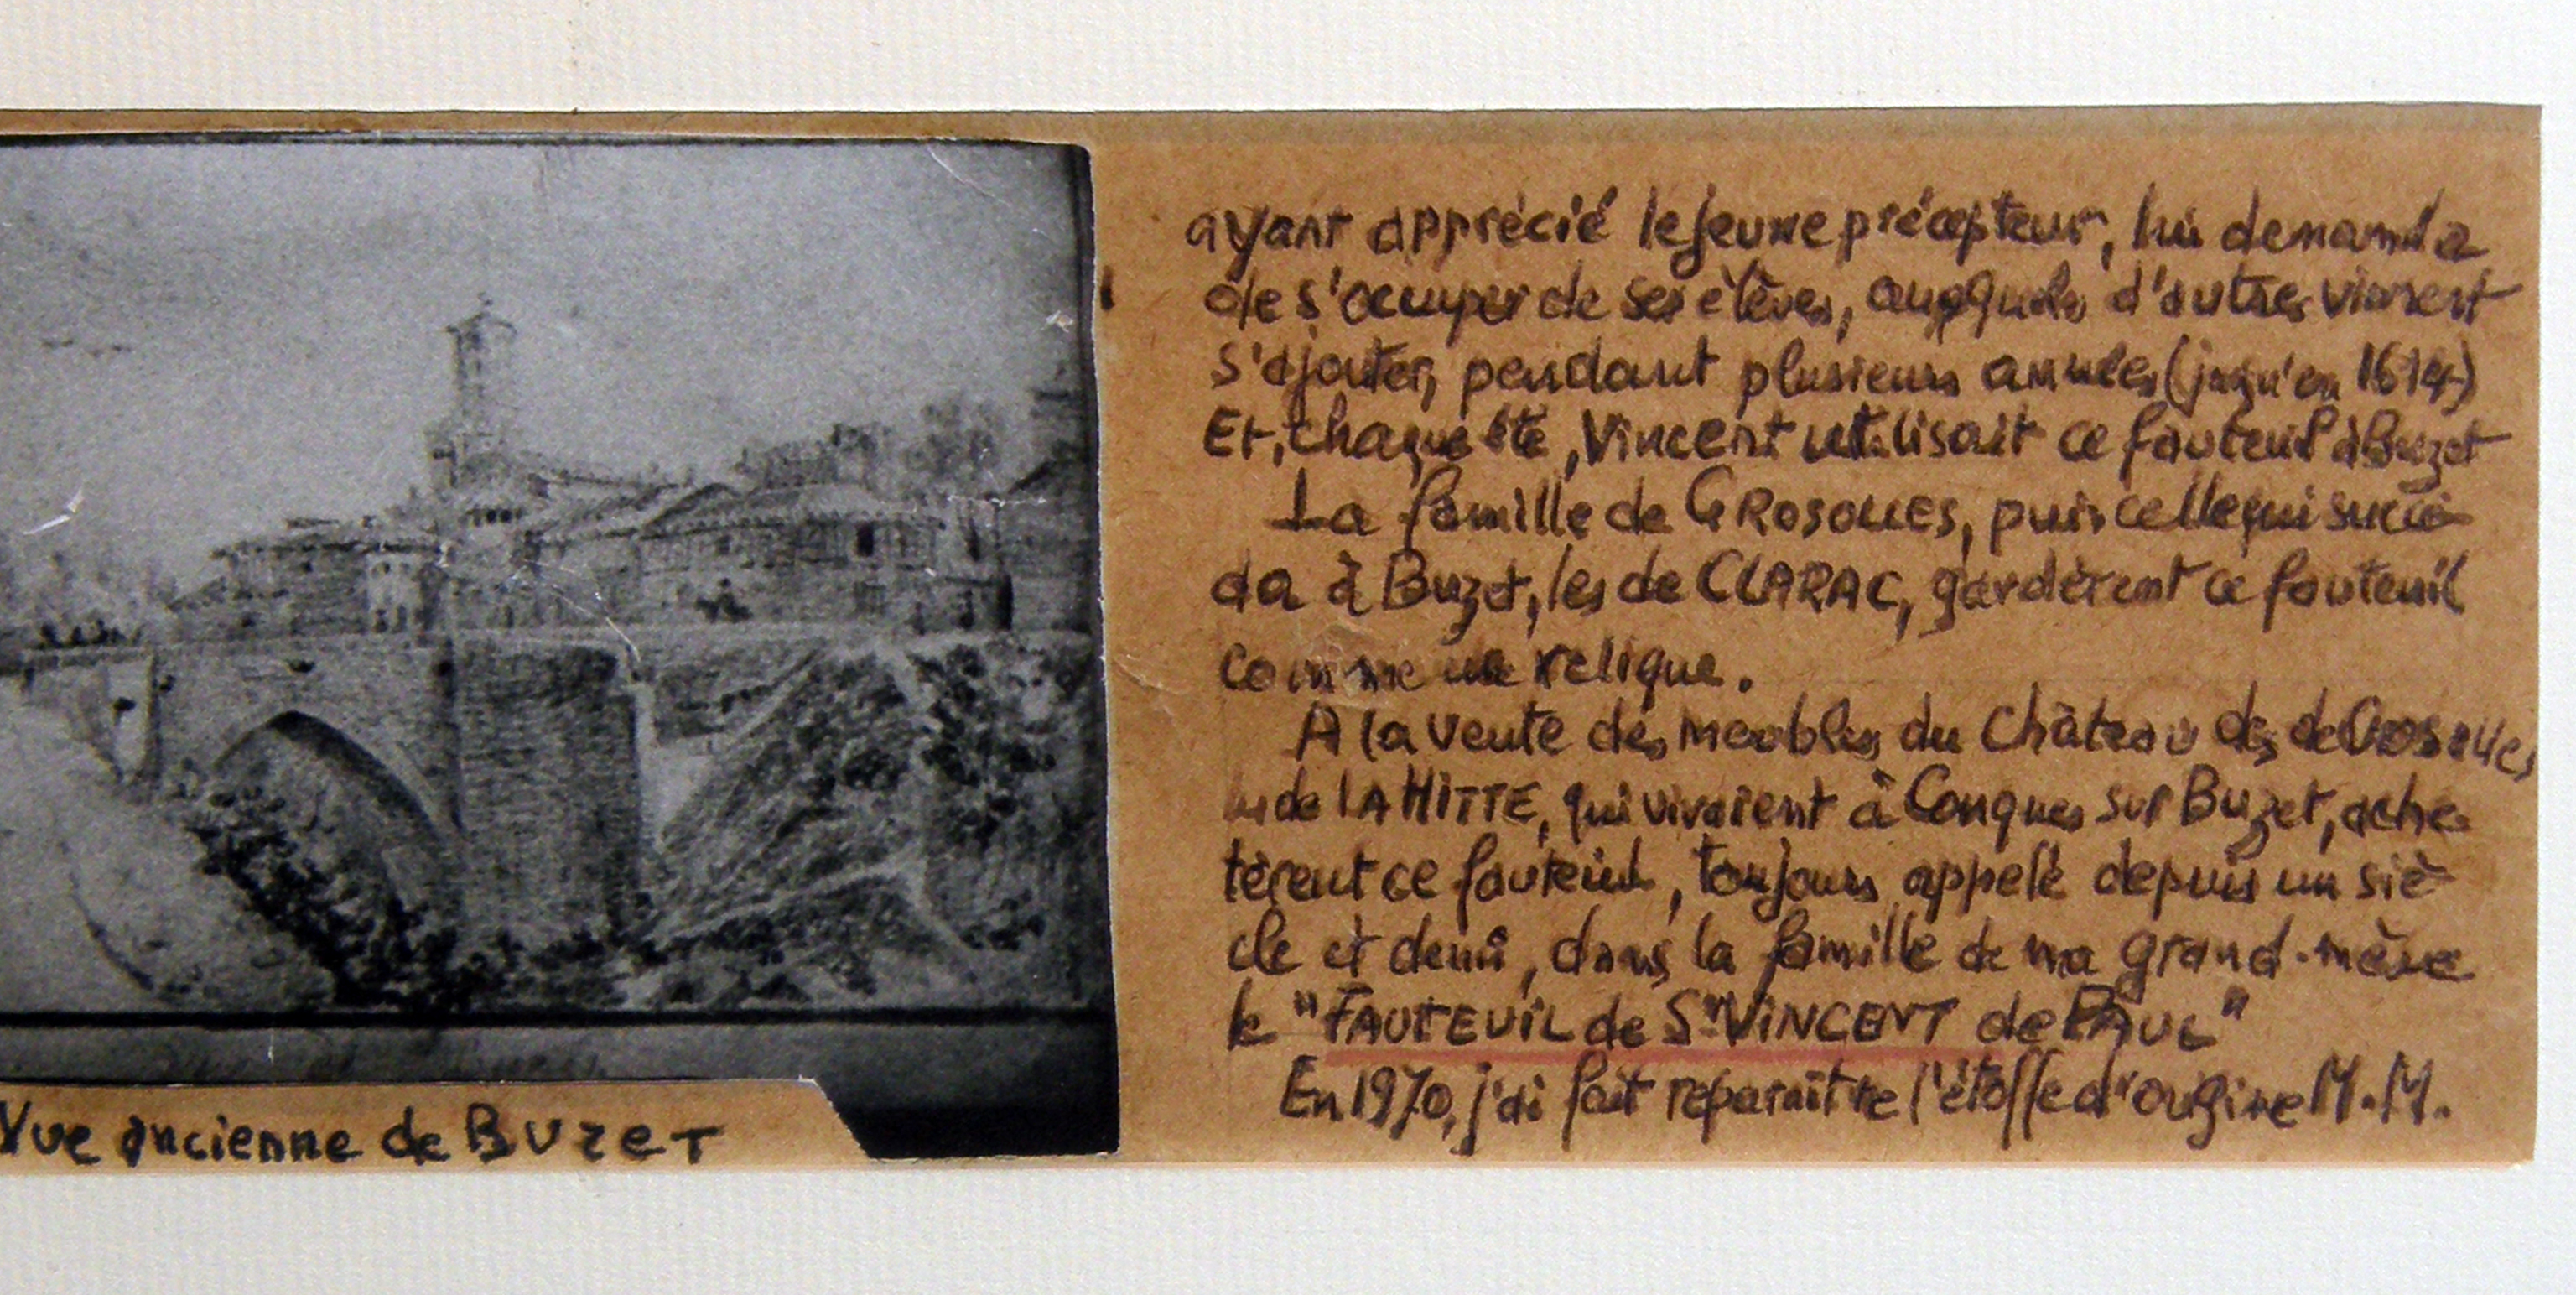 ayant apprécié le jeune précepteur, lui demanda
de s'occuper de ses élèves, auxquels d'autres vinrent
s'ajouter, pendant plusieurs années (jusqu'en 1614)
Et, chaque été, Vincent utilisait ce fauteuil à Buzet
La famille de GROSOLLES, puis celle qui succé-
da à Buzet, les de CLARAC, gardèrent ce fauteuil
comme une relique.
A la vente des meubles du Château des de Grosolles,
les de LAHITTE, qui vivaient à Conques sur Buzet, ache-
tèrent ce fauteuil, toujours appelé depuis un siè-
cle et demi, dans la famille de ma grand-mère
le "FAUTEUIL de St VINCENT de PAUL"
En 1970, j'ai fait reparaître l'étoffe d'origine M.M.
Vue ancienne de BUZET